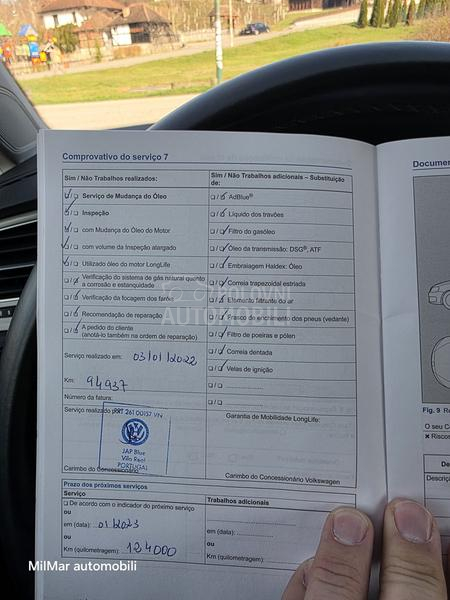 Comprovativo do serviço 7
Documen
Sim / Não Trabalhos realizados:
Sim / Não Trabalhos adicionais – Substituição de:
Serviço de Mudança do Óleo
Inspeção
com Mudança do Óleo do Motor
com volume da Inspeção alargado
Utilizado óleo do motor LongLife
Verificação do sistema de gás natural quanto a corrosão e estanquidade
Verificação da focagem dos faróis
Recomendação de reparação
A pedido do cliente
(anotá-lo também na ordem de reparação)
AdBlue®
Líquido dos travões
Filtro do gasóleo
Óleo da transmissão: DSG®, ATF
Embraiagem Haldex: Óleo
Correia trapezoidal estriada
Elemento filtrante do ar
Frasco do enchimento dos pneus (vedante)
Filtro de poeiras e pólen
Correia dentada
Velas de ignição
Serviço realizado em: 03/01/2022
Km: 94937
Número da fatura:
Serviço realizado por:
PRT 261 00157 VN
JAP Blue
Vila Real
PORTUGAL
Carimbo do Concessionário
Garantia de Mobilidade LongLife:
Carimbo do Concessionário Volkswagen
Prazo dos próximos serviços
Serviço
Trabalhos adicionais
De acordo com o indicador do próximo serviço
ou
em (data): 01/2023
ou
Km (quilometragem): 124000
em (data):
ou
Km (quilometragem):
Fig. 9 Re
O seu Ca
Risco
De
Descriç
POLOVNI
AUTOMOBILI
MilMar automobili